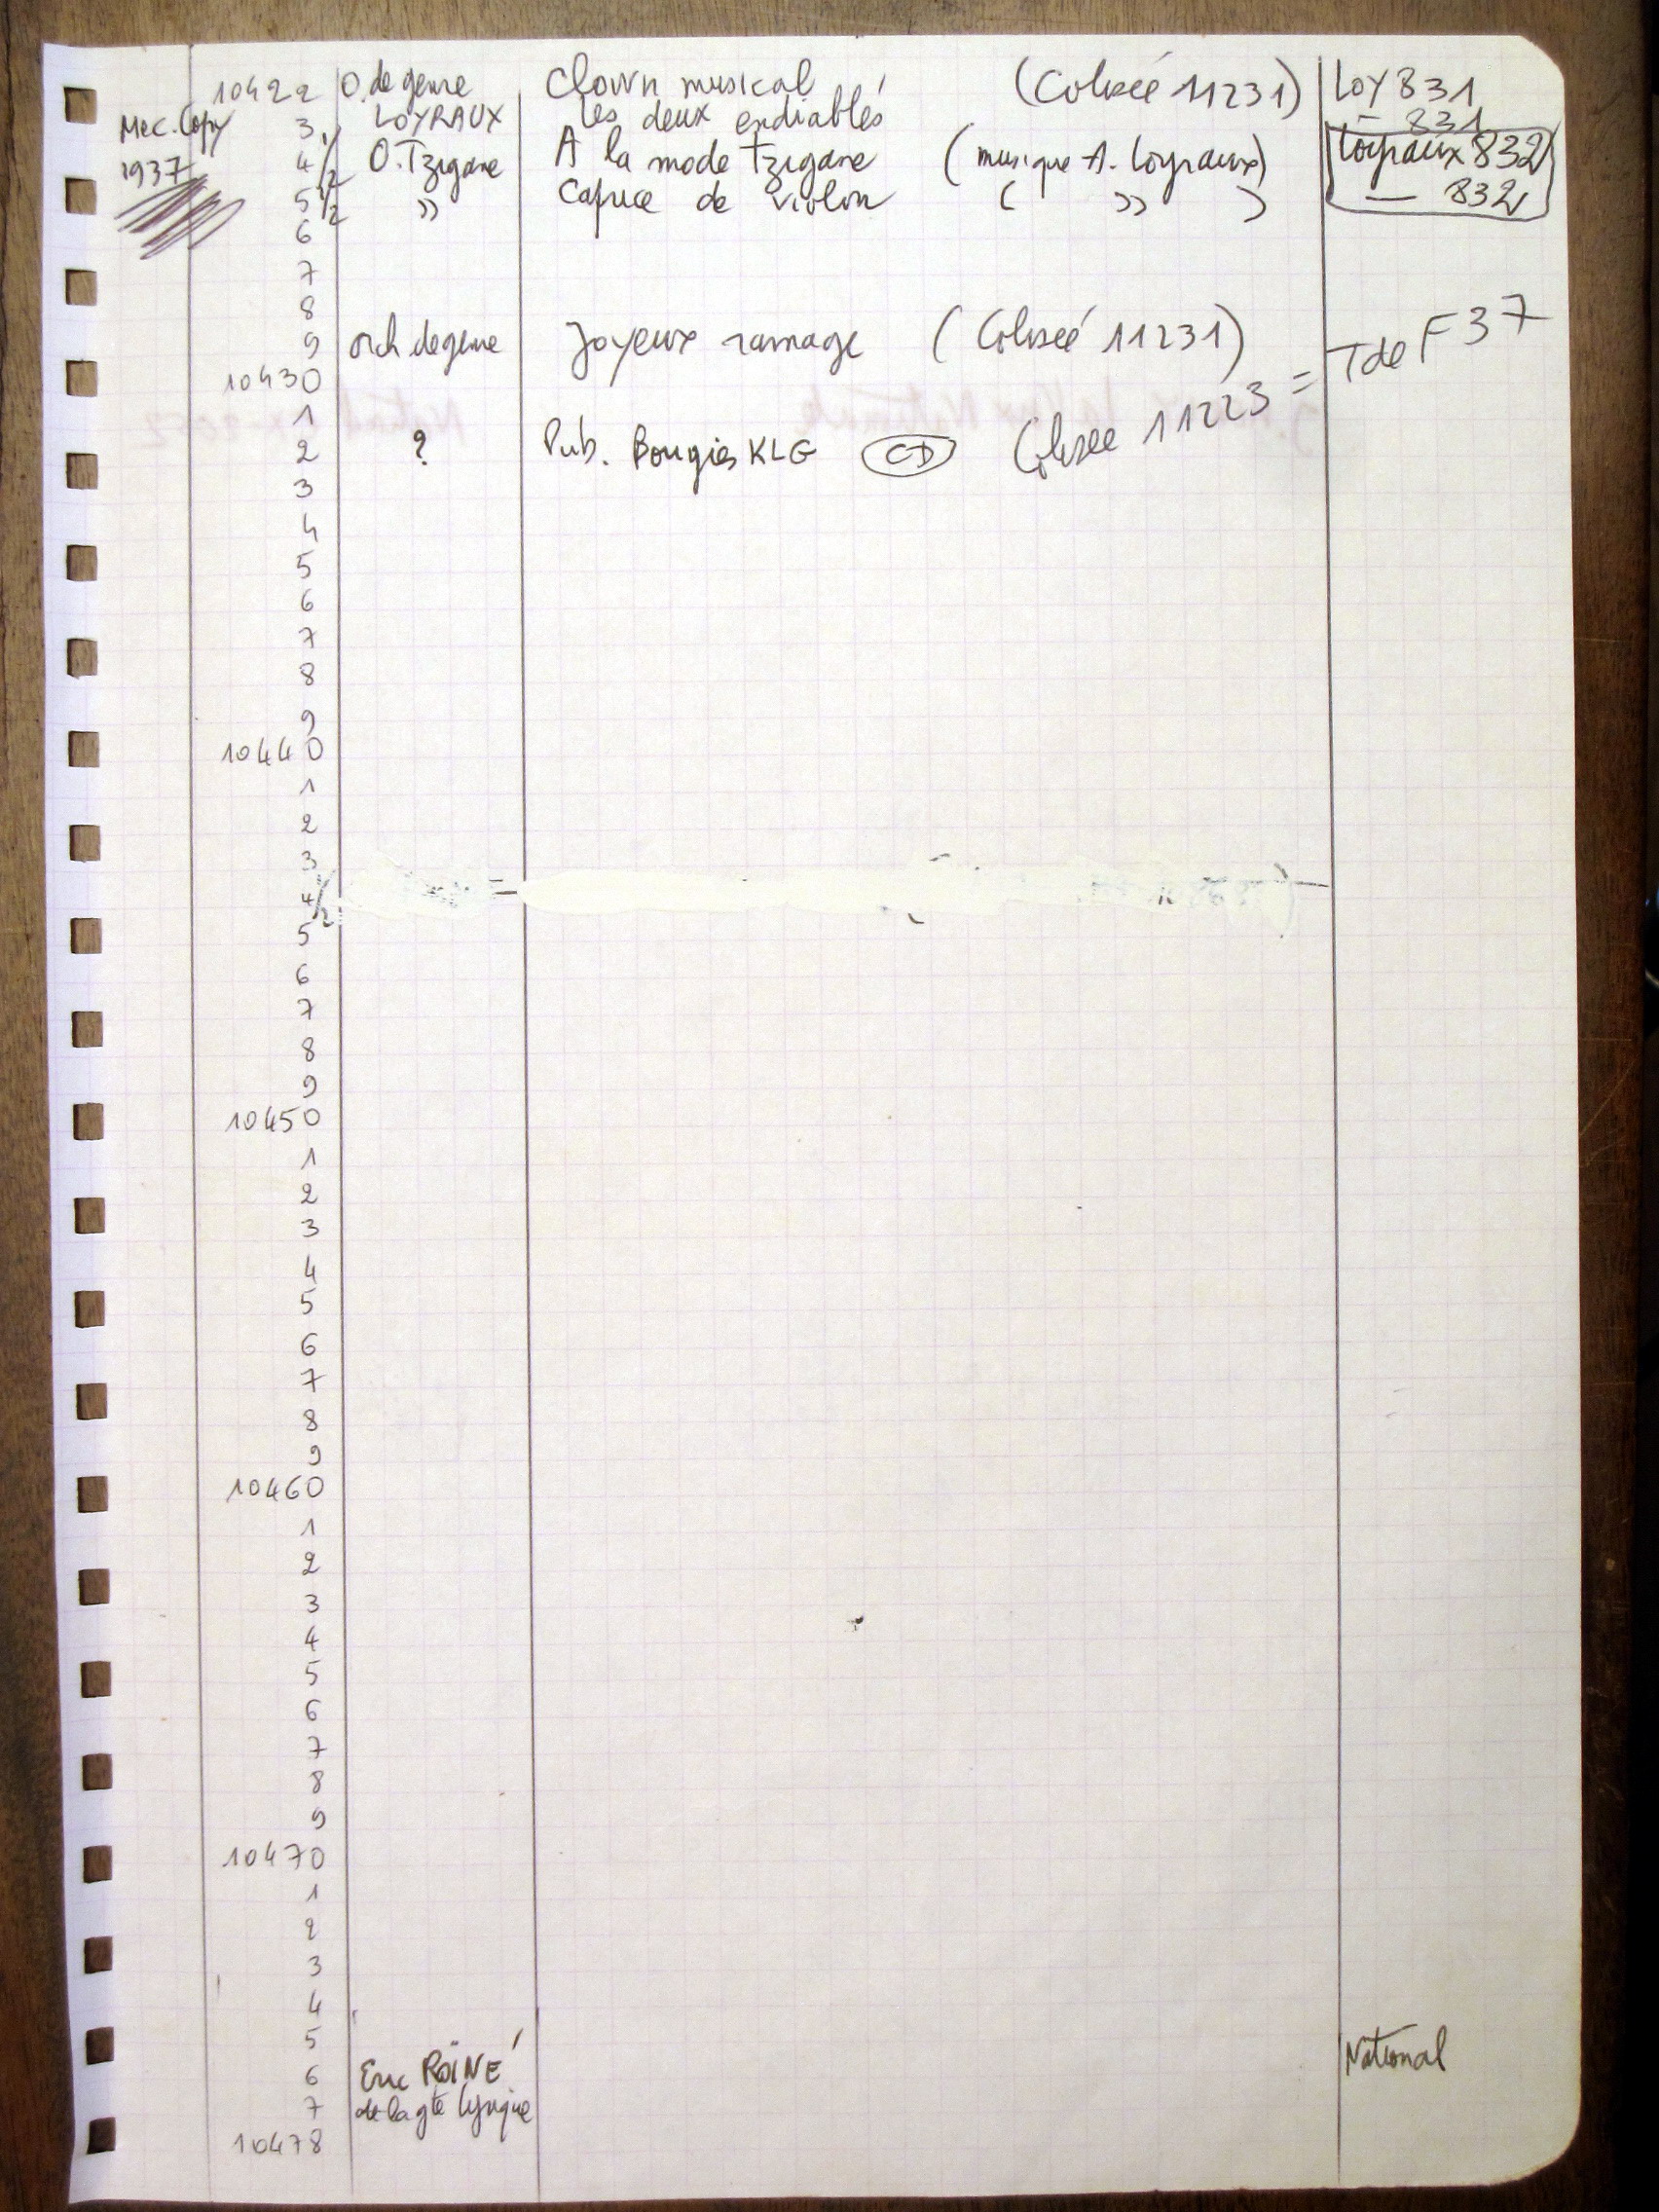 10422 O. de genre Clown musical (Colisée 11231) LOY 831
Mec. Copy 3 LOYRAUX Les deux endiablés — 831
1937 4/2 O. Tzigane A la mode Tzigane (musique A. Loyraux) Loyraux 832
5 1/2 » Caprice de violon ( » ) — 832
6
7
8
9 orch. de genre Joyeux ramage (Colisée 11231)
10430
1
2 ? Pub. Bougies KLG CD Colisée 11223 = T de F 37
3
4
5
6
7
8
9
10440
1
2
3
4/2
5
6
7
8
9
10450
1
2
3
4
5
6
7
8
9
10460
1
2
3
4
5
6
7
8
9
10470
1
2
3
4
5
6 Eric ROÏNÉ National
7 de la gté lyrique
10478